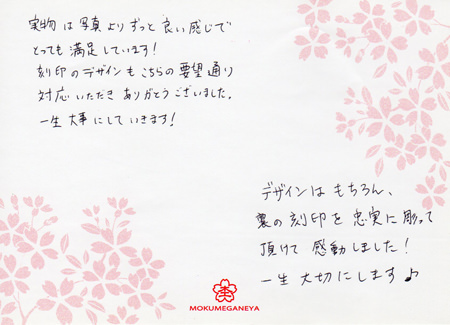 実物は写真よりずっと良い感じで
とっても満足しています!
刻印のデザインもこちらの要望通り
対応いただきありがとうございました。
一生大事にしていきます!
デザインはもちろん、
裏の刻印を忠実に彫って
頂けて感動しました!
一生大切にします♪
MOKUMEGANEYA